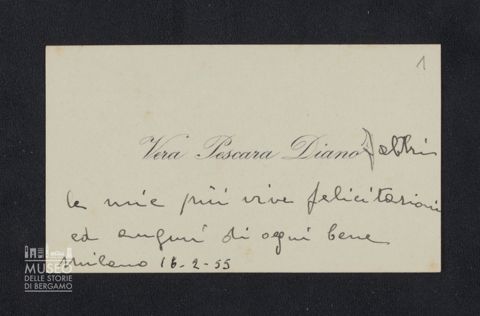 1
Vera Pescara Diano
le mie più vive felicitazioni
ed auguri di ogni bene
Milano 16-2-55
MUSEO
DELLE STORIE
DI BERGAMO